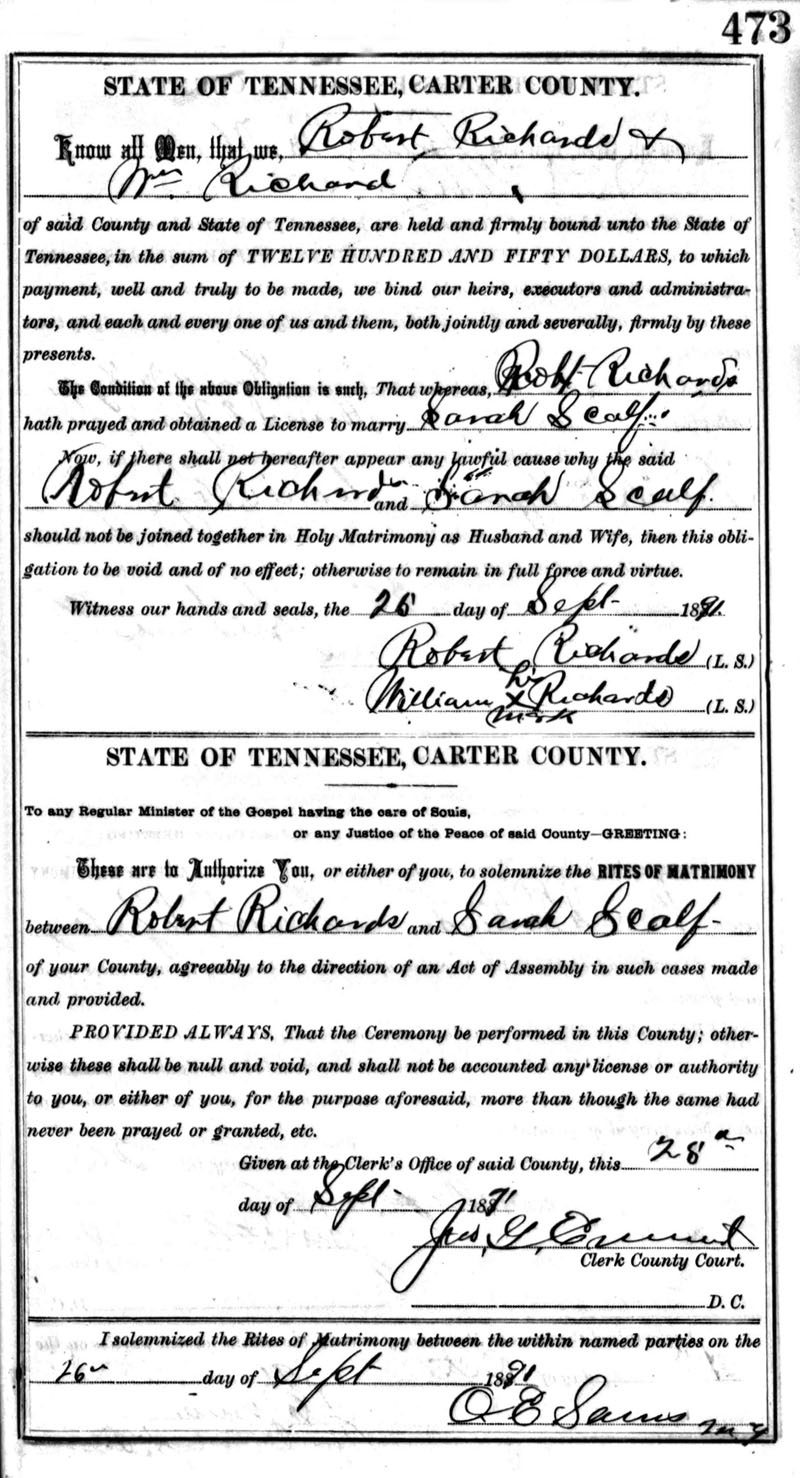 473
STATE OF TENNESSEE, CARTER COUNTY.
Know all Men, that we, Robert Richards &
Wm Richard
of said County and State of Tennessee, are held and firmly bound unto the State of
Tennessee, in the sum of TWELVE HUNDRED AND FIFTY DOLLARS, to which
payment, well and truly to be made, we bind our heirs, executors and administra-
tors, and each and every one of us and them, both jointly and severally, firmly by these
presents.
The Condition of the above Obligation is such, That whereas, Robt Richards
hath prayed and obtained a License to marry Sarah Scalf
Now, if there shall not hereafter appear any lawful cause why the said
Robert Richards and Sarah Scalf
should not be joined together in Holy Matrimony as Husband and Wife, then this obli-
gation to be void and of no effect; otherwise to remain in full force and virtue.
Witness our hands and seals, the 26 day of Sept 1891.
Robert Richards (L. S.)
his
William x Richards (L. S.)
mark
STATE OF TENNESSEE, CARTER COUNTY.
To any Regular Minister of the Gospel having the care of Souls,
or any Justice of the Peace of said County—GREETING:
These are to Authorize You, or either of you, to solemnize the RITES OF MATRIMONY
between Robert Richards and Sarah Scalf
of your County, agreeably to the direction of an Act of Assembly in such cases made
and provided.
PROVIDED ALWAYS, That the Ceremony be performed in this County; other-
wise these shall be null and void, and shall not be accounted any license or authority
to you, or either of you, for the purpose aforesaid, more than though the same had
never been prayed or granted, etc.
Given at the Clerk's Office of said County, this 28
day of Sept 1891
Clerk County Court.
D. C.
I solemnized the Rites of Matrimony between the within named parties on the
26 day of Sept 1891
O E Sams M G